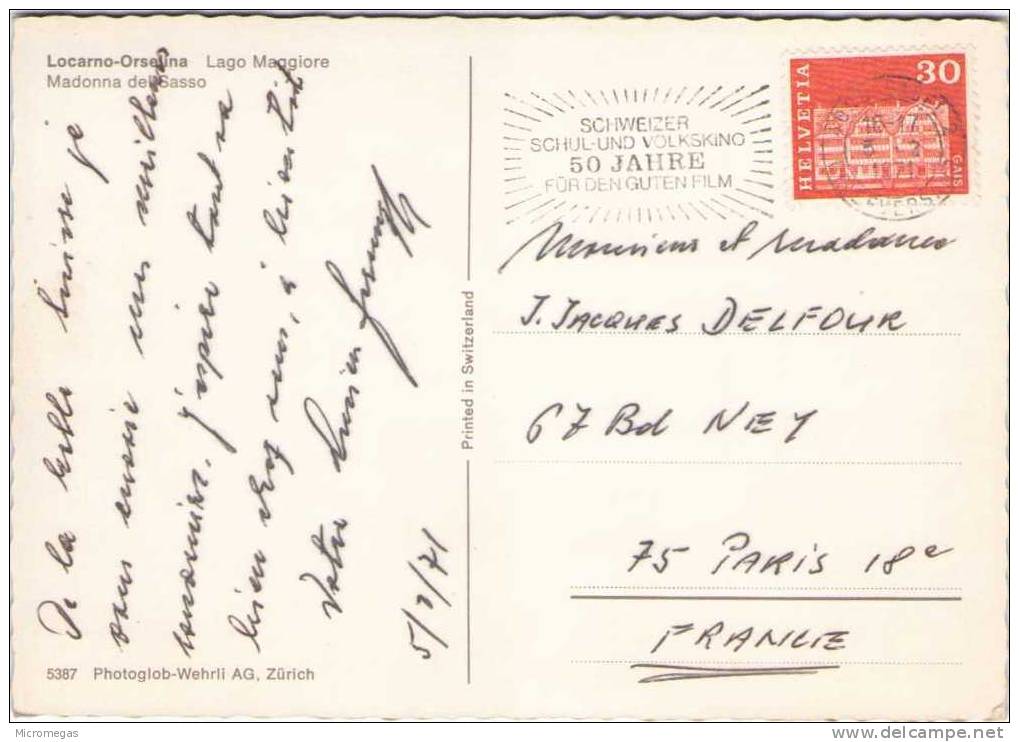 Locarno-Orselina Lago Maggiore
Madonna del Sasso
De la belle Suisse je
vous envoie mes meilleurs
souvenirs. J'espère tout va
bien chez vous, à bientôt
Votre
5/3/71
5387 Photoglob-Wehrli AG, Zürich
Printed in Switzerland
SCHWEIZER
SCHUL-UND VOLKSKINO
50 JAHRE
FÜR DEN GUTEN FILM
HELVETIA
30
GAIS
Monsieur et Madame
J. JACQUES DELFOUR
67 Bd NEY
75 PARIS 18e
FRANCE
Micromegas
delcampe.net